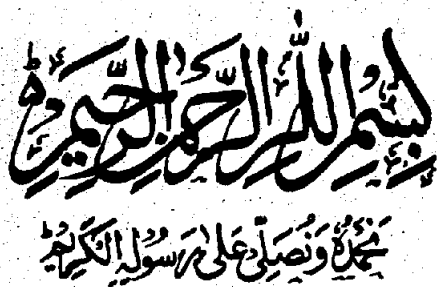 بِسْمِ اللهِ الرَّحْمٰنِ الرَّحِيْمِ ط
نَحْمَدُهٗ وَنُصَلِّىْ عَلٰى رَسُوْلِهِ الْكَرِيْمِ ط